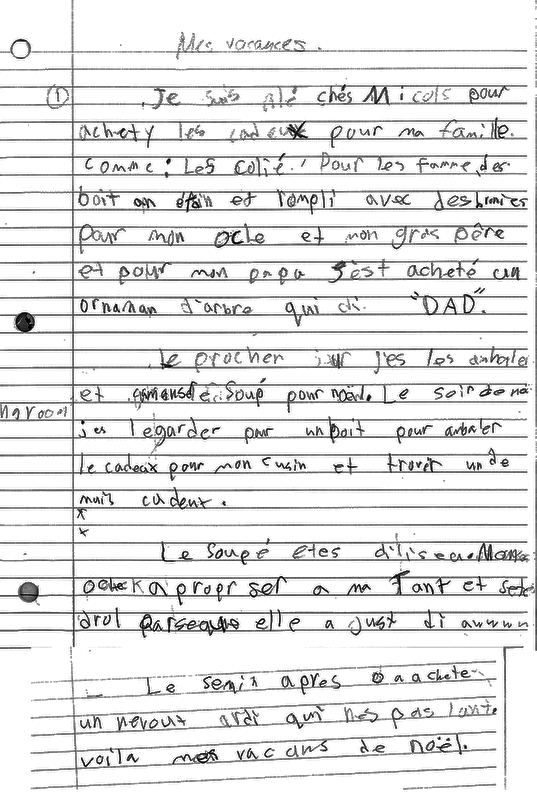 Mes vacances.
① Je suis alé chés Micols pour
achety les cadeux pour ma famille.
comme: Les colié. Pour les famme, des
boit an étain et rempli avec des
pour mon ocle et mon gras père
et pour mon papa j'est acheté un
ornaman d'arbre qui di "DAD".
Le procher jour j'es les anbaler
et soupé pour noël. Le soir de
j'es legarder pour un boit pour anbaler
le cadeux pour mon cusin et trover un de
muis cadeux.
Le Soupé etes
ocle K a propr ser a ma Tant et
drol parseque elle a just di awwww
Le semin apres a achete
un nevout ardi qui nes pas lant
voila mes vacans de noël.